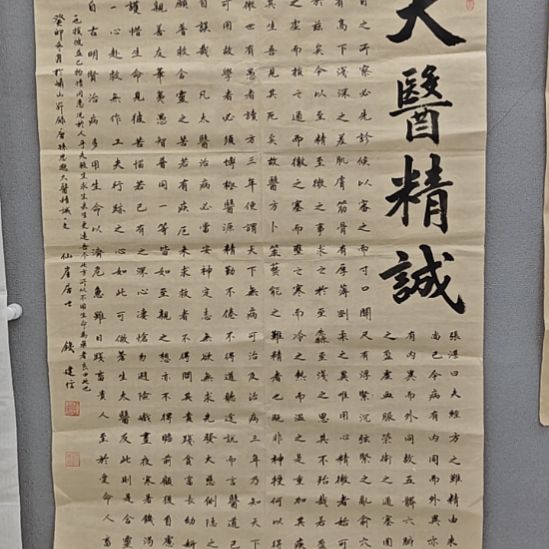 大醫精誠
張湛曰夫經方之難精由來
尚已今病有內同而外異亦
有內異而外同故五臟六腑
之盈虛血脈榮衛之通塞固
目之所察必先診候以審之而寸口關尺有浮沉弦緊之亂俞穴
有高下淺深之差肌膚筋骨有厚薄剛柔之異唯用心精微者始可
於茲矣今以至精至微之事求之於至麤至淺之思其不殆哉若盈
虛而損之通而徹之塞而壅之寒而冷之熱而溫之是重加其疾
其生吾見其死矣故醫方卜筮藝能之難精者也既非神授何以得
微世有愚者讀方三年便謂天下無病可治及治病三年乃知天下
可用故學者必須博極醫源精勤不倦不得道聽途說而言醫道已
自誤哉凡太醫治病必當安神定志無欲無求先發大慈惻隱之
願普救含靈之苦若有疾厄來求救者不得問其貴賤貧富長幼妍
親善友華夷愚智普同一等皆如至親之想亦不得瞻前顧後自慮
護惜生命見彼苦惱若己有之深心悽愴勿避險巇晝夜寒暑飢渴
一心赴救無作工夫行跡之心如此可做蒼生大醫反此則是含靈
自古明賢治病多用生命以濟危急雖曰賤畜貴人至於愛命人畜
也損彼益己物情同患況於人乎夫殺生求生去生更遠吾今此方所以不用生命為藥者良由此也
癸卯冬月於山錄唐孫思邈大醫精誠之文 仙崖居士 錢建信